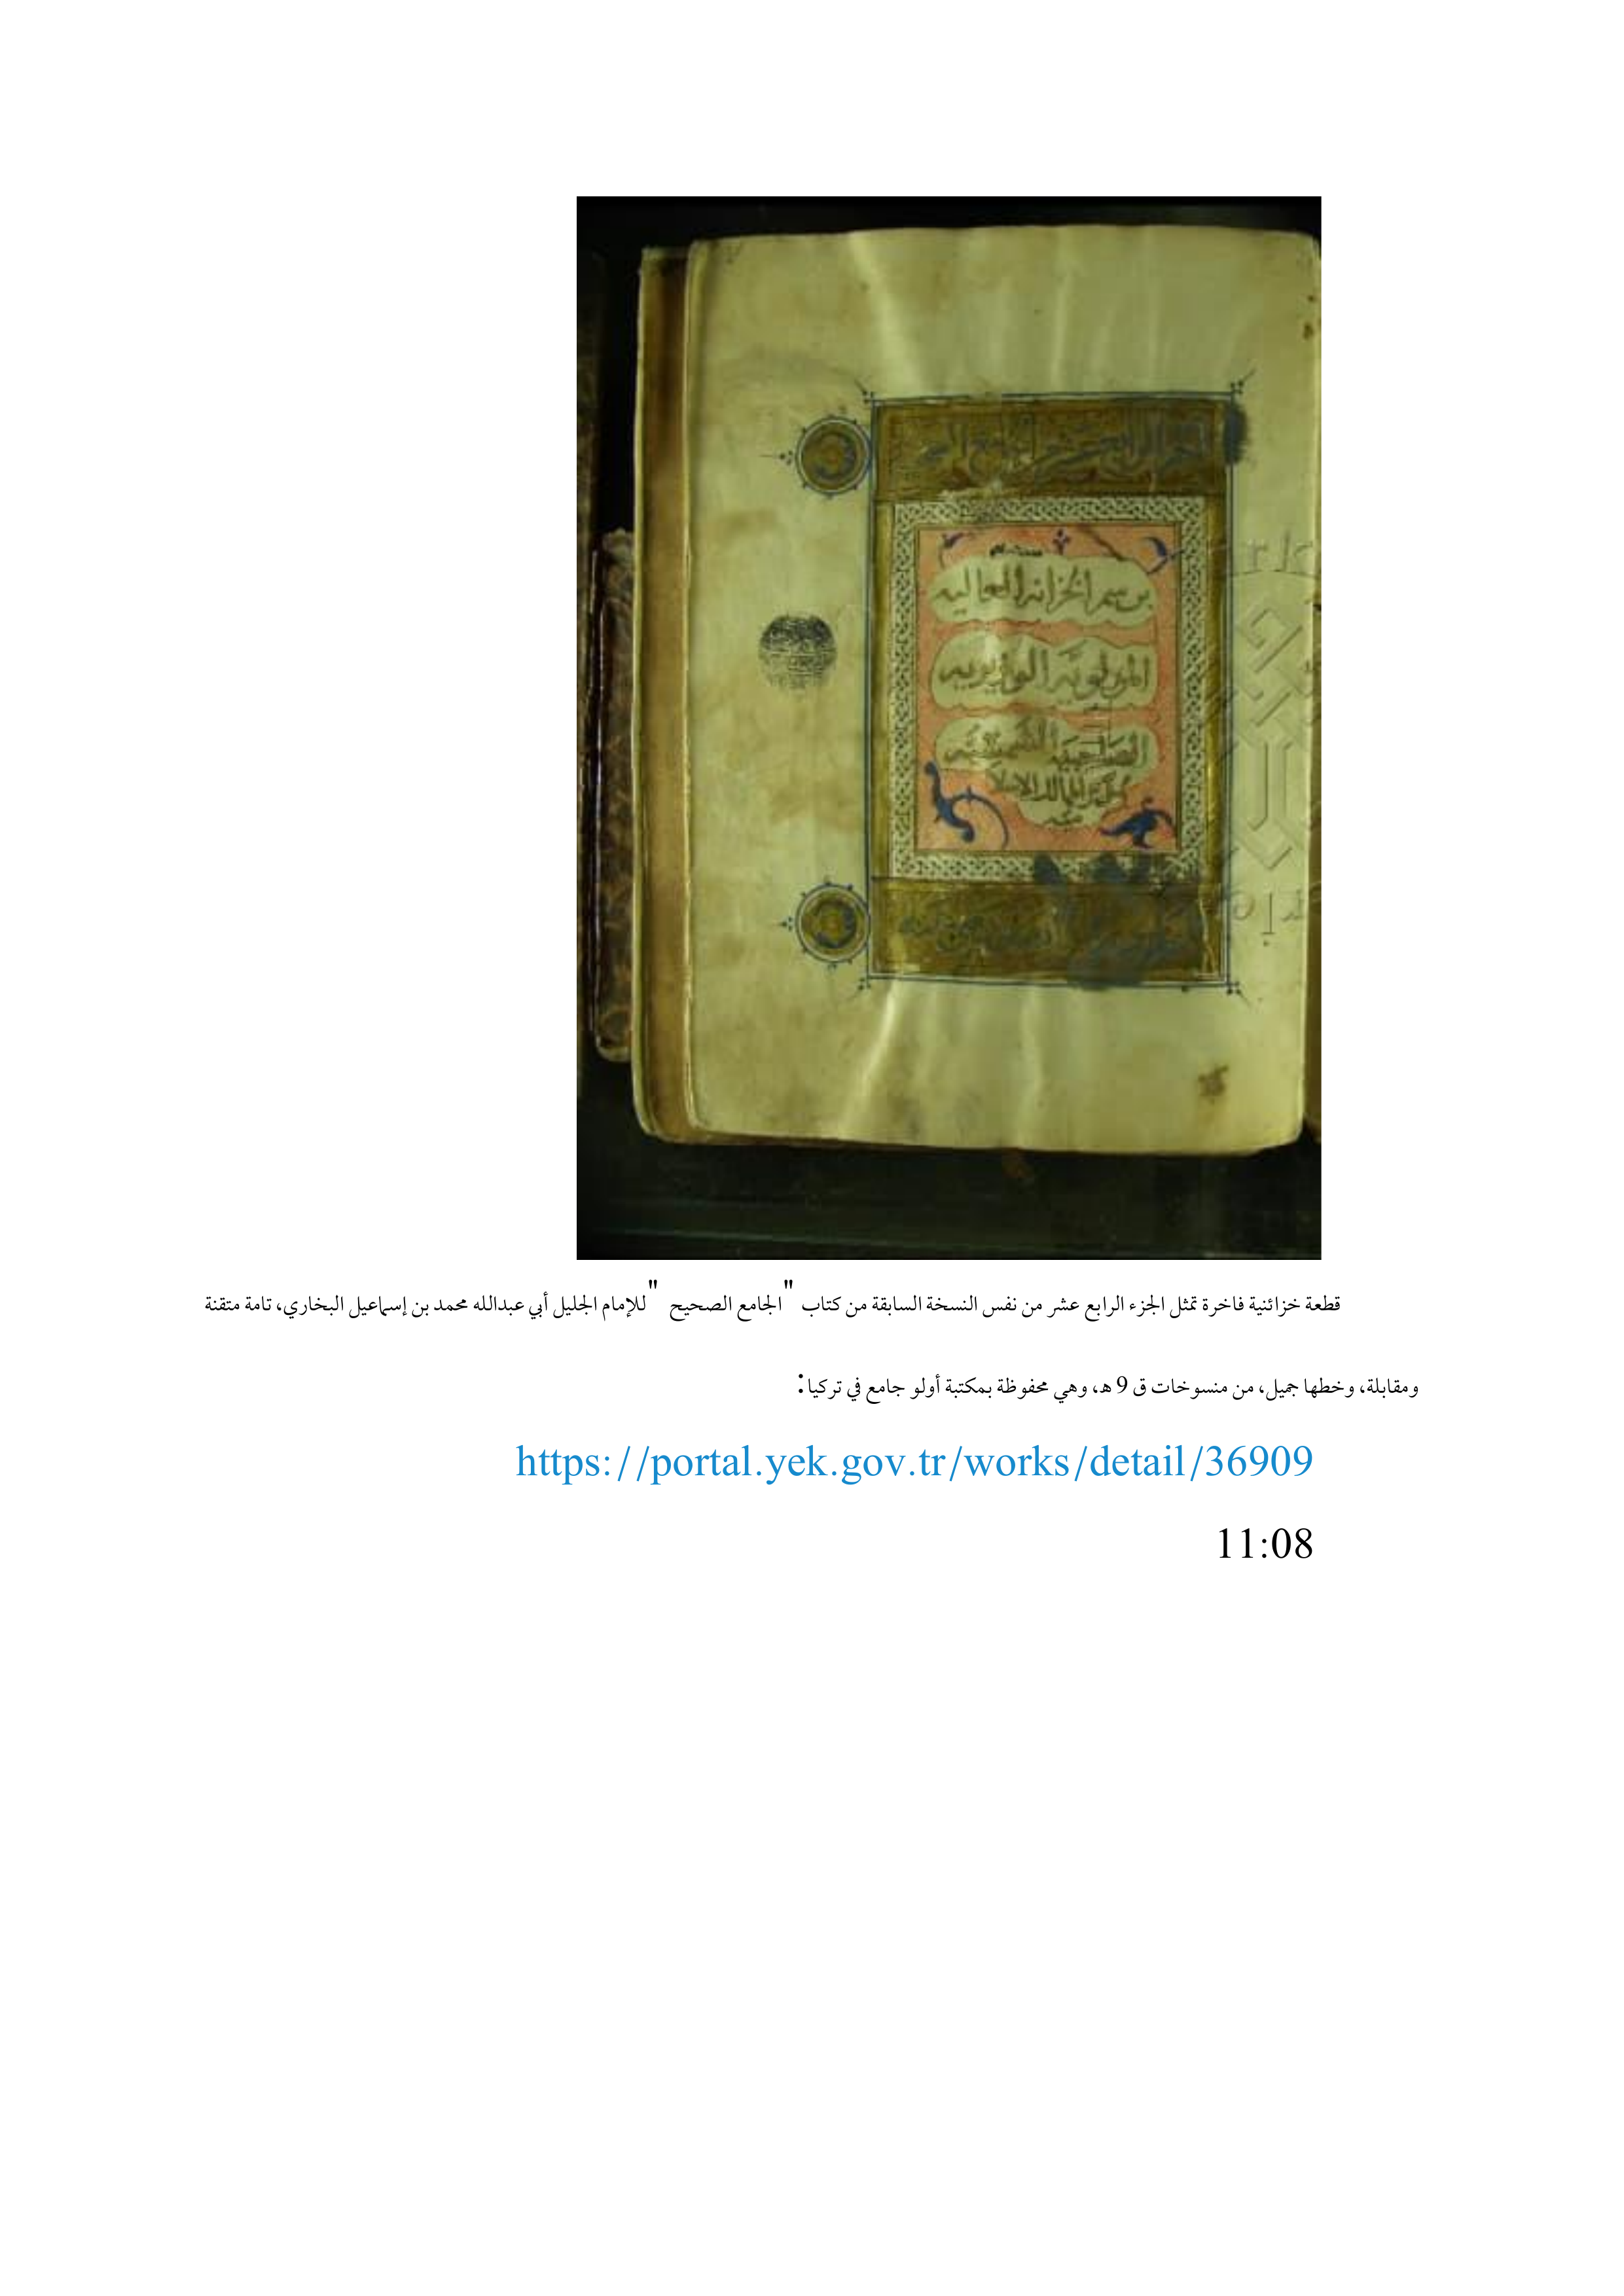 برسم الخزانه العاليه
المولويه الوزيريه
الصاحبيه الشمسيه
الممالك الاسلا
ميه
قطعة خزائنية فاخرة تمثل الجزء الرابع عشر من نفس النسخة السابقة من كتاب "الجامع الصحيح" للإمام الجليل أبي عبدالله محمد بن إسماعيل البخاري، تامة متقنة
ومقابلة، وخطها جميل، من منسوخات ق 9 هـ، وهي محفوظة بمكتبة أولو جامع في تركيا:
https://portal.yek.gov.tr/works/detail/36909
11:08